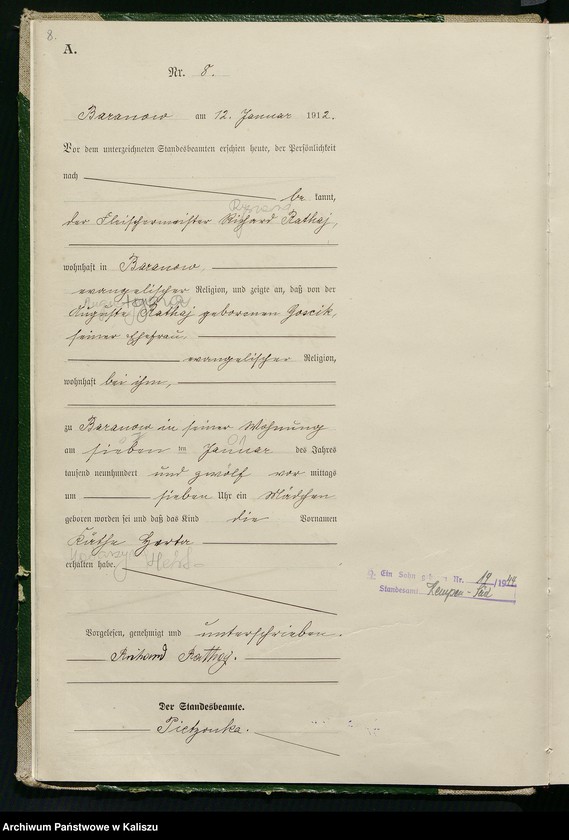 8.
A.
Nr. 8.
Baranow am 12. Januar 1912.
Vor dem unterzeichneten Standesbeamten erschien heute, der Persönlichkeit
nach
be kannt,
der Fleischermeister Richard Rathaj,
wohnhaft in Baranow
evangelischer Religion, und zeigte an, daß von der
Auguste Rathaj geborenen Goscik,
seiner Ehefrau,
evangelischer Religion,
wohnhaft bei ihm,
zu Baranow in seiner Wohnung
am sieben ten Januar des Jahres
tausend neunhundert und zwölf vor mittags
um sieben Uhr ein Mädchen
geboren worden sei und daß das Kind die Vornamen
Käthe Herta
erhalten habe.
Ein Sohn Nr. 19/1944
Standesamt Kempen-Süd
Vorgelesen, genehmigt und unterschrieben.
Richard Rathaj.
Der Standesbeamte.
Pietzonka.
Archiwum Państwowe w Kaliszu